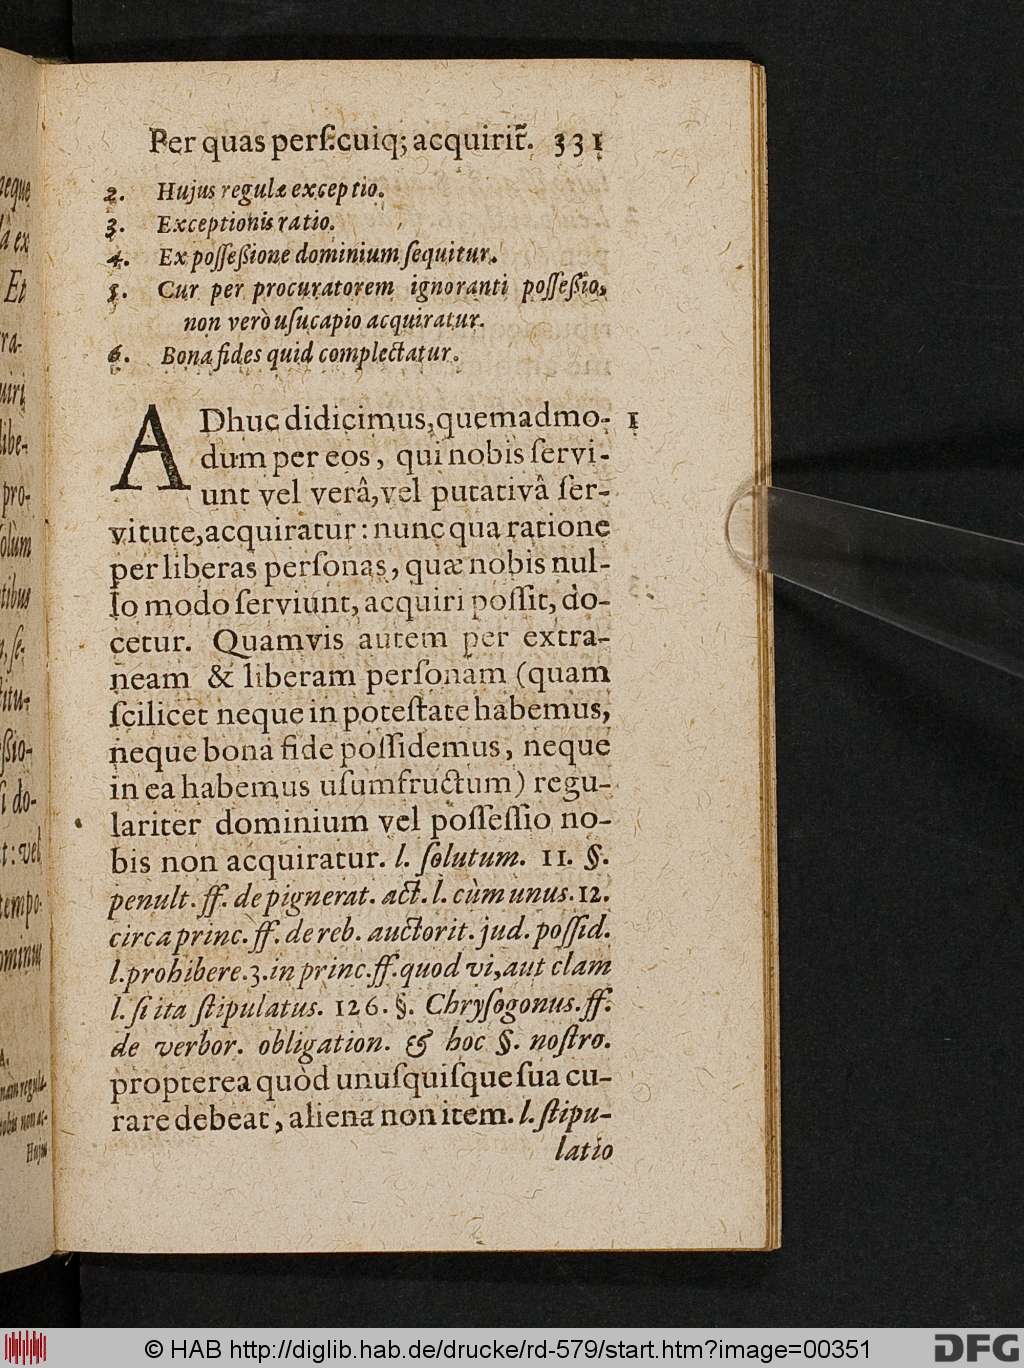 Per quas pers. cuiq; acquirit̃. 331
2. Hujus regulæ exceptio.
3. Exceptionis ratio.
4. Ex posseßione dominium sequitur.
5. Cur per procuratorem ignoranti posseßio,
non verò usucapio acquiratur.
6. Bona fides quid complectatur.
ADhuc didicimus, quemadmo- 1
dum per eos, qui nobis servi-
unt vel verâ, vel putativâ ser-
vitute, acquiratur: nunc qua ratione
per liberas personas, quæ nobis nul-
lo modo serviunt, acquiri possit, do-
cetur. Quamvis autem per extra-
neam & liberam personam (quam
scilicet neque in potestate habemus,
neque bona fide possidemus, neque
in ea habemus usumfructum) regu-
lariter dominium vel possessio no-
bis non acquiratur. l. solutum. 11. §.
penult. ff. de pignerat. act. l. cùm unus. 12.
circa princ. ff. de reb. auctorit. jud. possid.
l. prohibere. 3. in princ. ff. quod vi, aut clam
l. si ita stipulatus. 126. §. Chrysogonus. ff.
de verbor. obligation. & hoc §. nostro.
propterea quòd unusquisque sua cu-
rare debeat, aliena non item. l. stipu-
latio
neque
Et
uiri
libe-
pro-
solùm
tibus
do-
vel
tempo-
Hujus
© HAB http://diglib.hab.de/drucke/rd-579/start.htm?image=00351
DFG